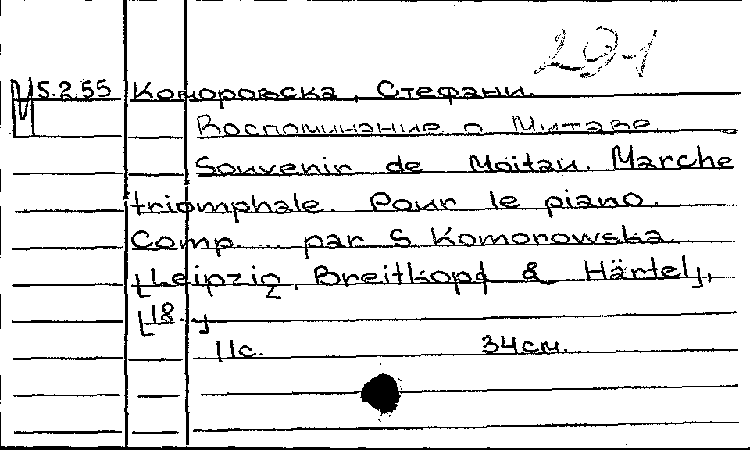 291
М 5.2.55 Коморовска, Стефани.
Воспоминание о Митаве
Souvenir de Moitau. Marche
triomphale. Pour le piano.
Comp. ... par S. Komorowska.
[Leipzig, Breitkopf & Härtel],
[18..]
11с. 34см.